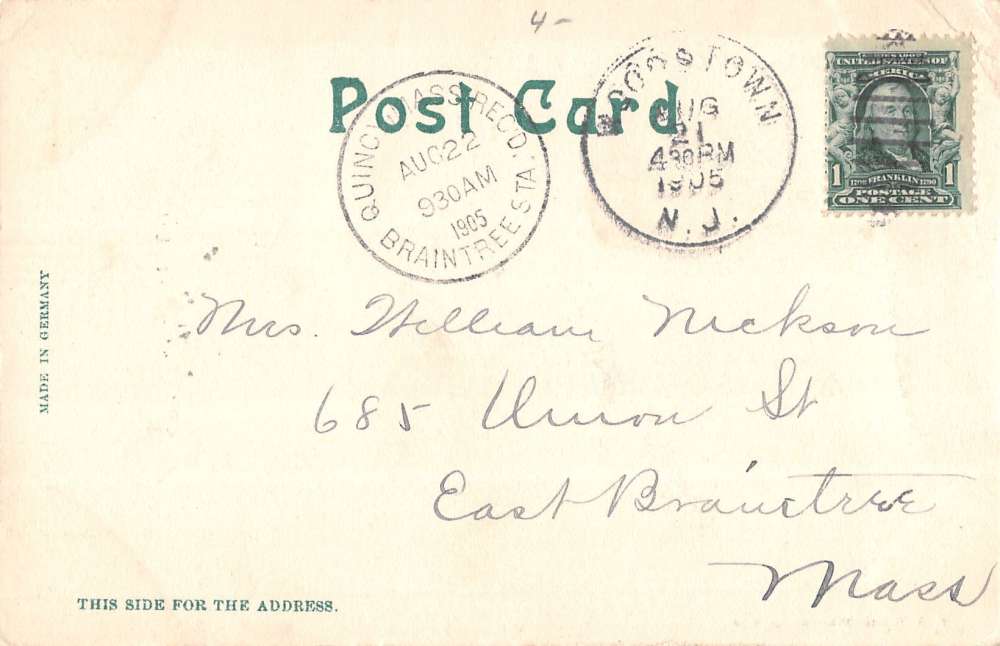 4-
Post Card
QUINCY, MASS. REC'D.
AUG 22
930 AM
1905
BRAINTREE STA.
WOODSTOWN
AUG
21
430 PM
1905
N.J.
SERIES 1902
UNITED STATES OF
AMERICA
1 1706 FRANKLIN 1790 1
POSTAGE
ONE CENT
MADE IN GERMANY
Mrs. William Nickson
685 Union St
East Braintree
Mass
THIS SIDE FOR THE ADDRESS.